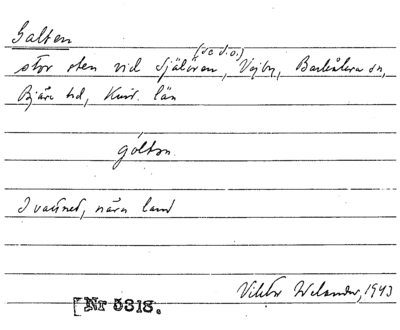 Galten
(se d.o.)
stor sten vid Själören, Vejby, Barkåkra sn,
Bjäre hd, Krist. län
gòltən
I vattnet, nära land
Viktor Welander, 1943
[Nr 5318.